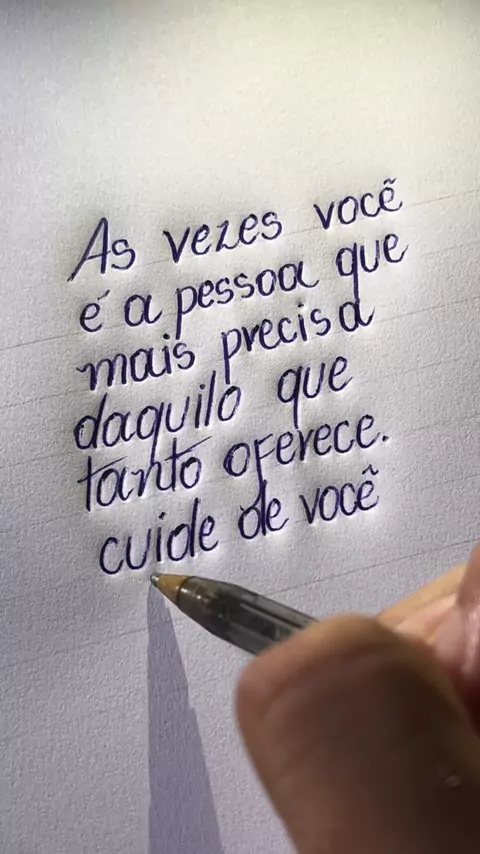 As vezes você
é a pessoa que
mais precisa
daquilo que
tanto oferece.
cuide de você